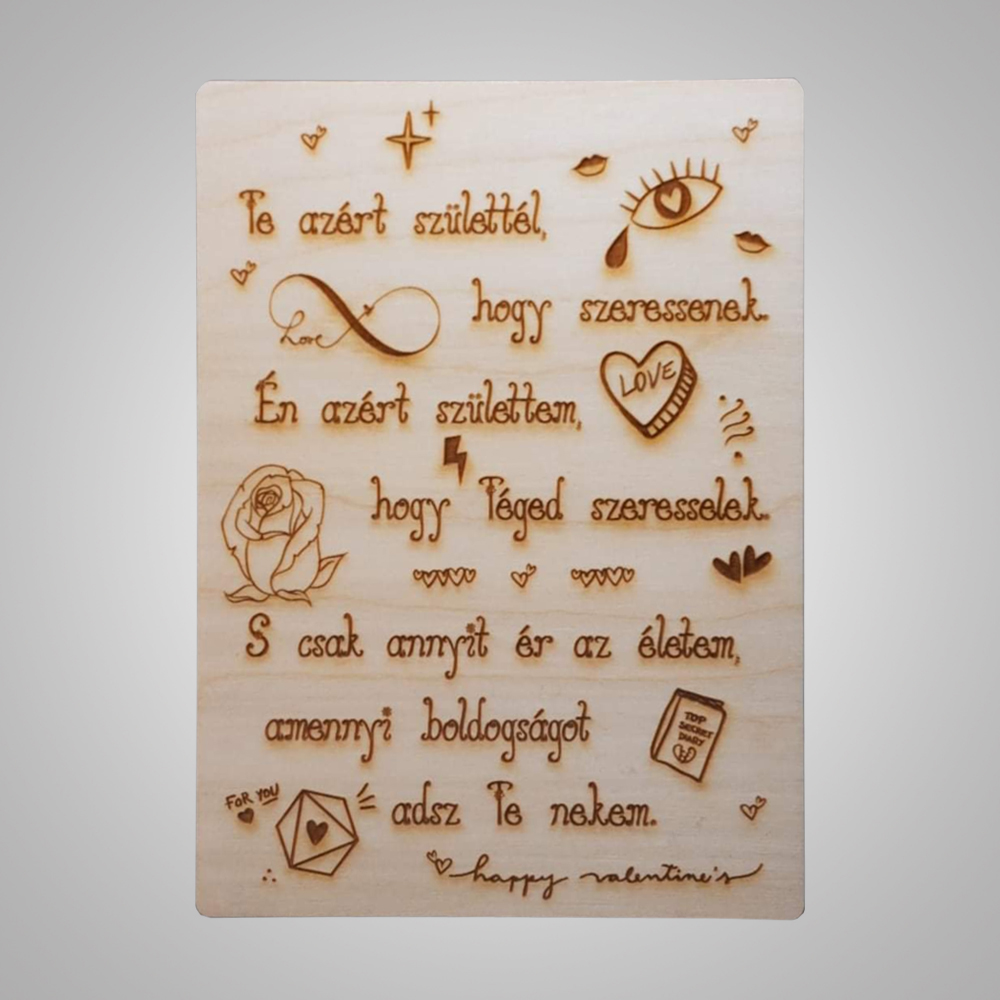 Te azért születtél,
hogy szeressenek.
Love
LOVE
Én azért születtem,
hogy Téged szeresselek.
S csak annyit ér az életem,
amennyi boldogságot
TOP
SECRET
DIARY
FOR YOU
adsz Te nekem.
happy valentine's